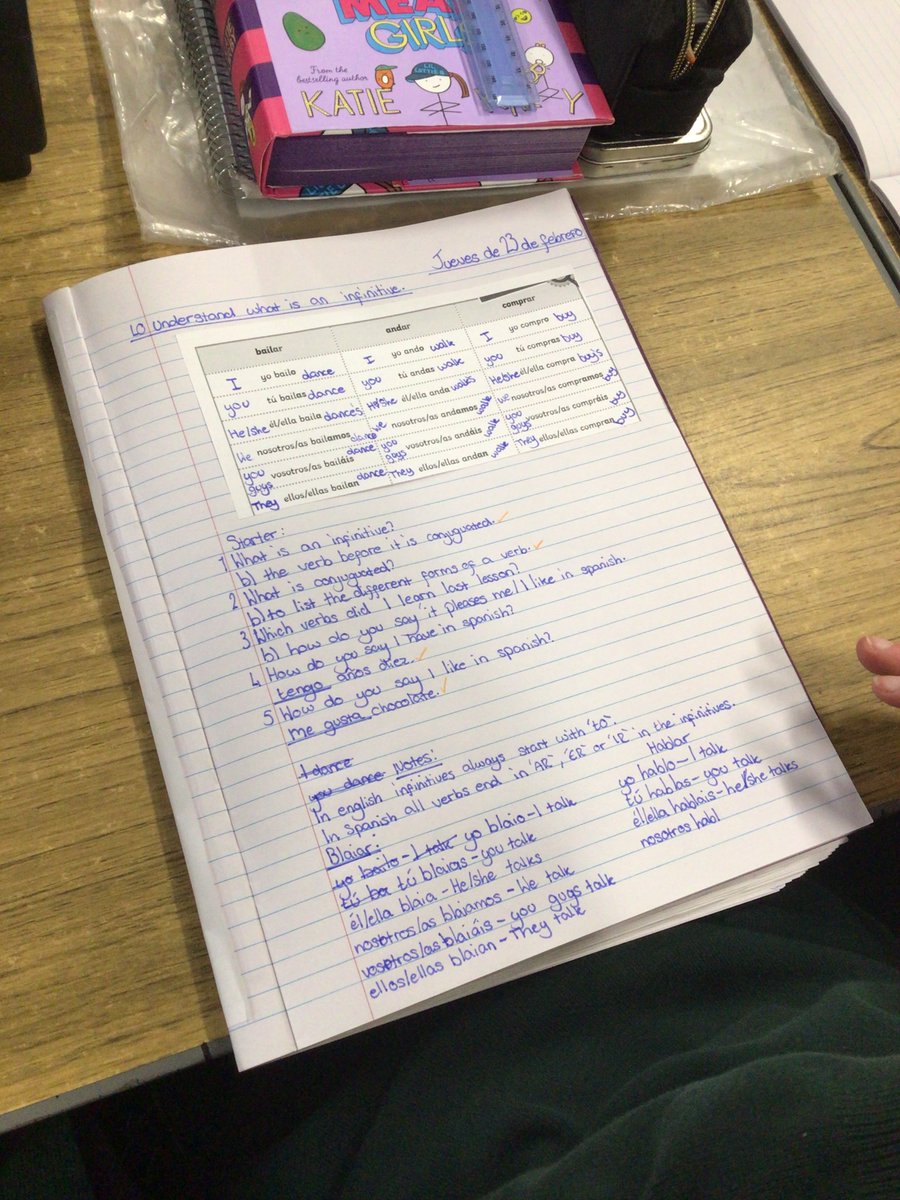 MEA
GIRL
From the
bestselling author
KATIE
Y
Jueves de 23 de febrero
LO Understand what is an infinitive.
bailar andar comprar
I yo bailo dance I yo ando walk I yo compro buy
you tú bailas dance you tú andas walk you tú compras buy
He/she él/ella baila dances He/she él/ella anda walks He/she él/ella compra buys
We nosotros/as bailamos dance we nosotros/as andamos walk we nosotros/as compramos buy
you guys vosotros/as bailáis dance you guys vosotros/as andáis walk you guys vosotros/as compráis buy
They ellos/ellas bailan dance They ellos/ellas andan walk They ellos/ellas compran buy
Starter:
1 What is an infinitive?
b) the verb before it is conjuguated.
2 What is conjuguated?
b) to list the different forms of a verb.
3 Which verbs did I learn last lesson?
b) how do you say 'it pleases me/I like in spanish.
4 How do you say I have in spanish?
tengo años diez.
5 How do you say I like in spanish?
me gusta chocolate.
I dance
you dance Notes:
In english infinitives always start with 'to'.
In spanish all verbs end in 'AR', 'ER' or 'IR' in the infinitives.
Blaiar:
yo bailo - I talk yo blaio - I talk
tú ba tú blaias - you talk
él/ella blaia - He/she talks
nosotros/as blaiamos - We talk
vosotros/as blaiáis - you guys talk
ellos/ellas blaian - They talk
Hablar
yo hablo - I talk
tú hablas - you talk
él/ella hablais - he/she talks
nosotros habl